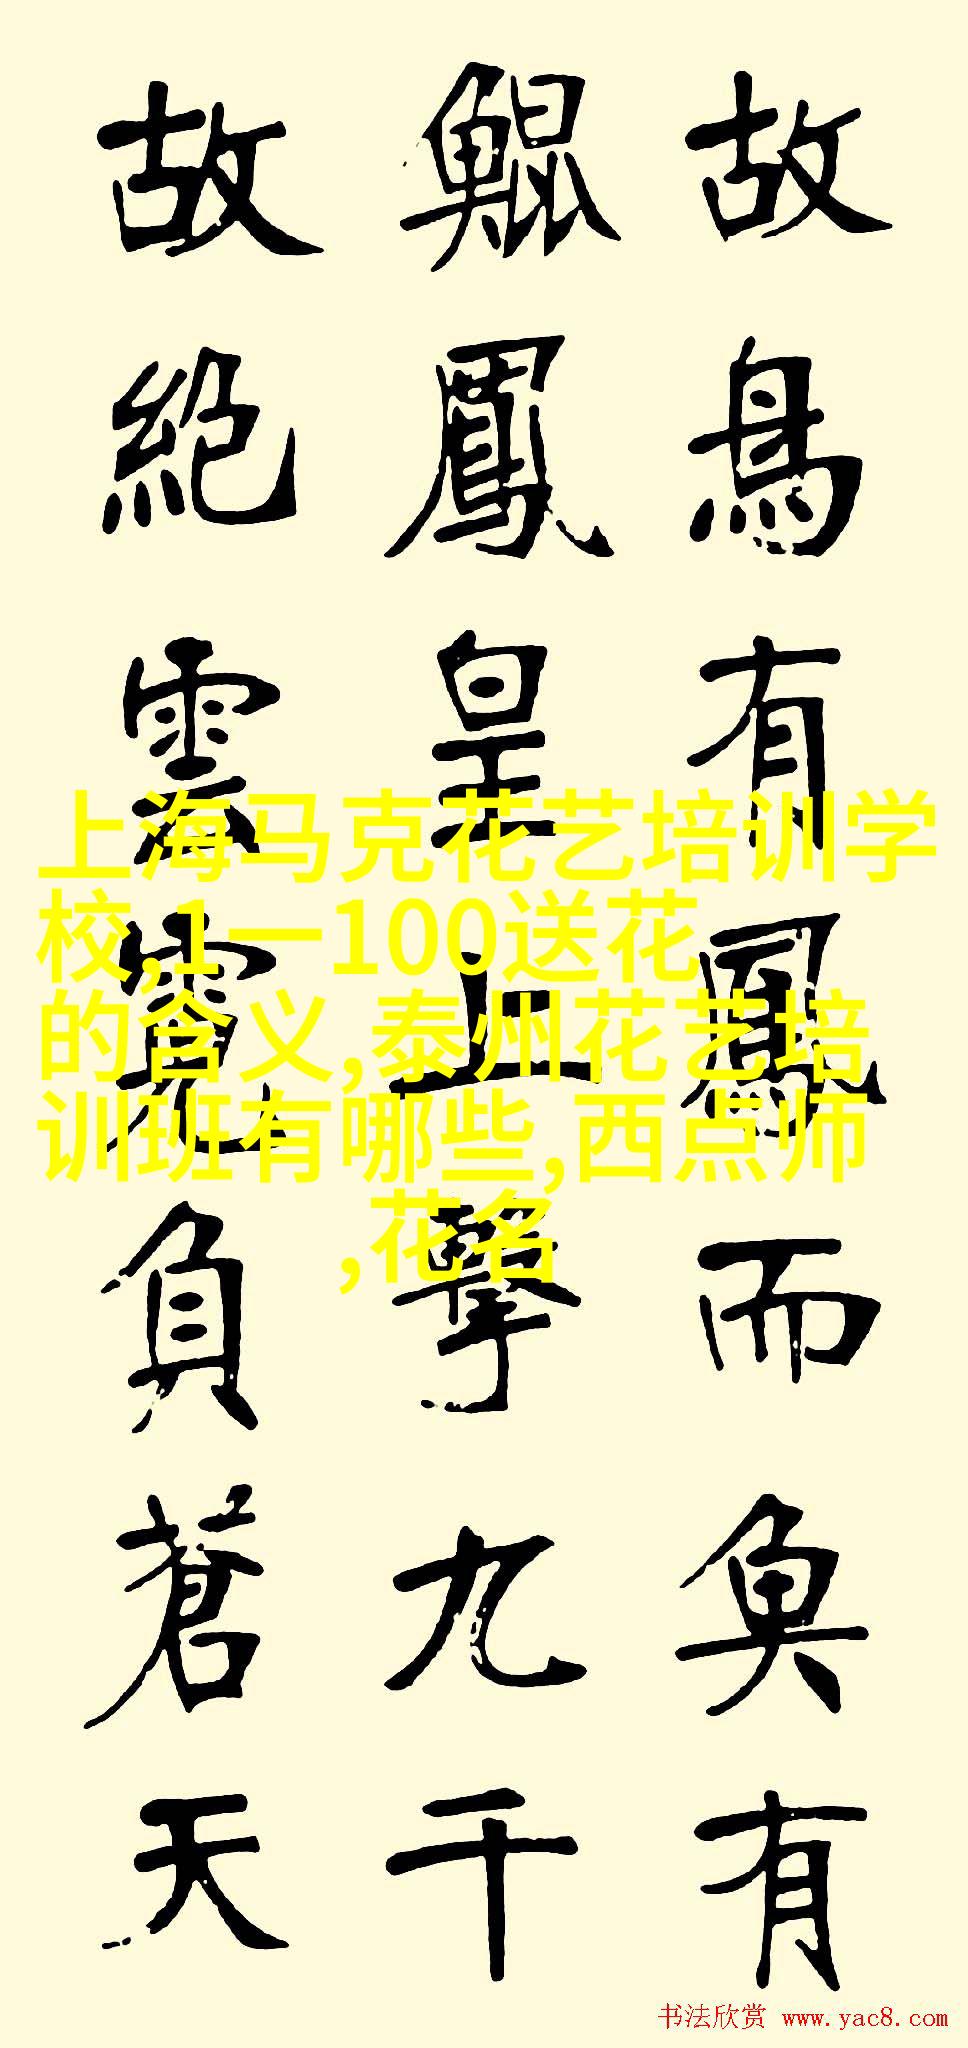 故鳥有鳳而魚有
鯤鳳皇上擊九千
故絕雲霓負蒼天
上海马克花艺培训学
校,1一100送花
的含义,泰州花艺培
训班有哪些,西点师
,花名
书法欣赏 www.yac8.com